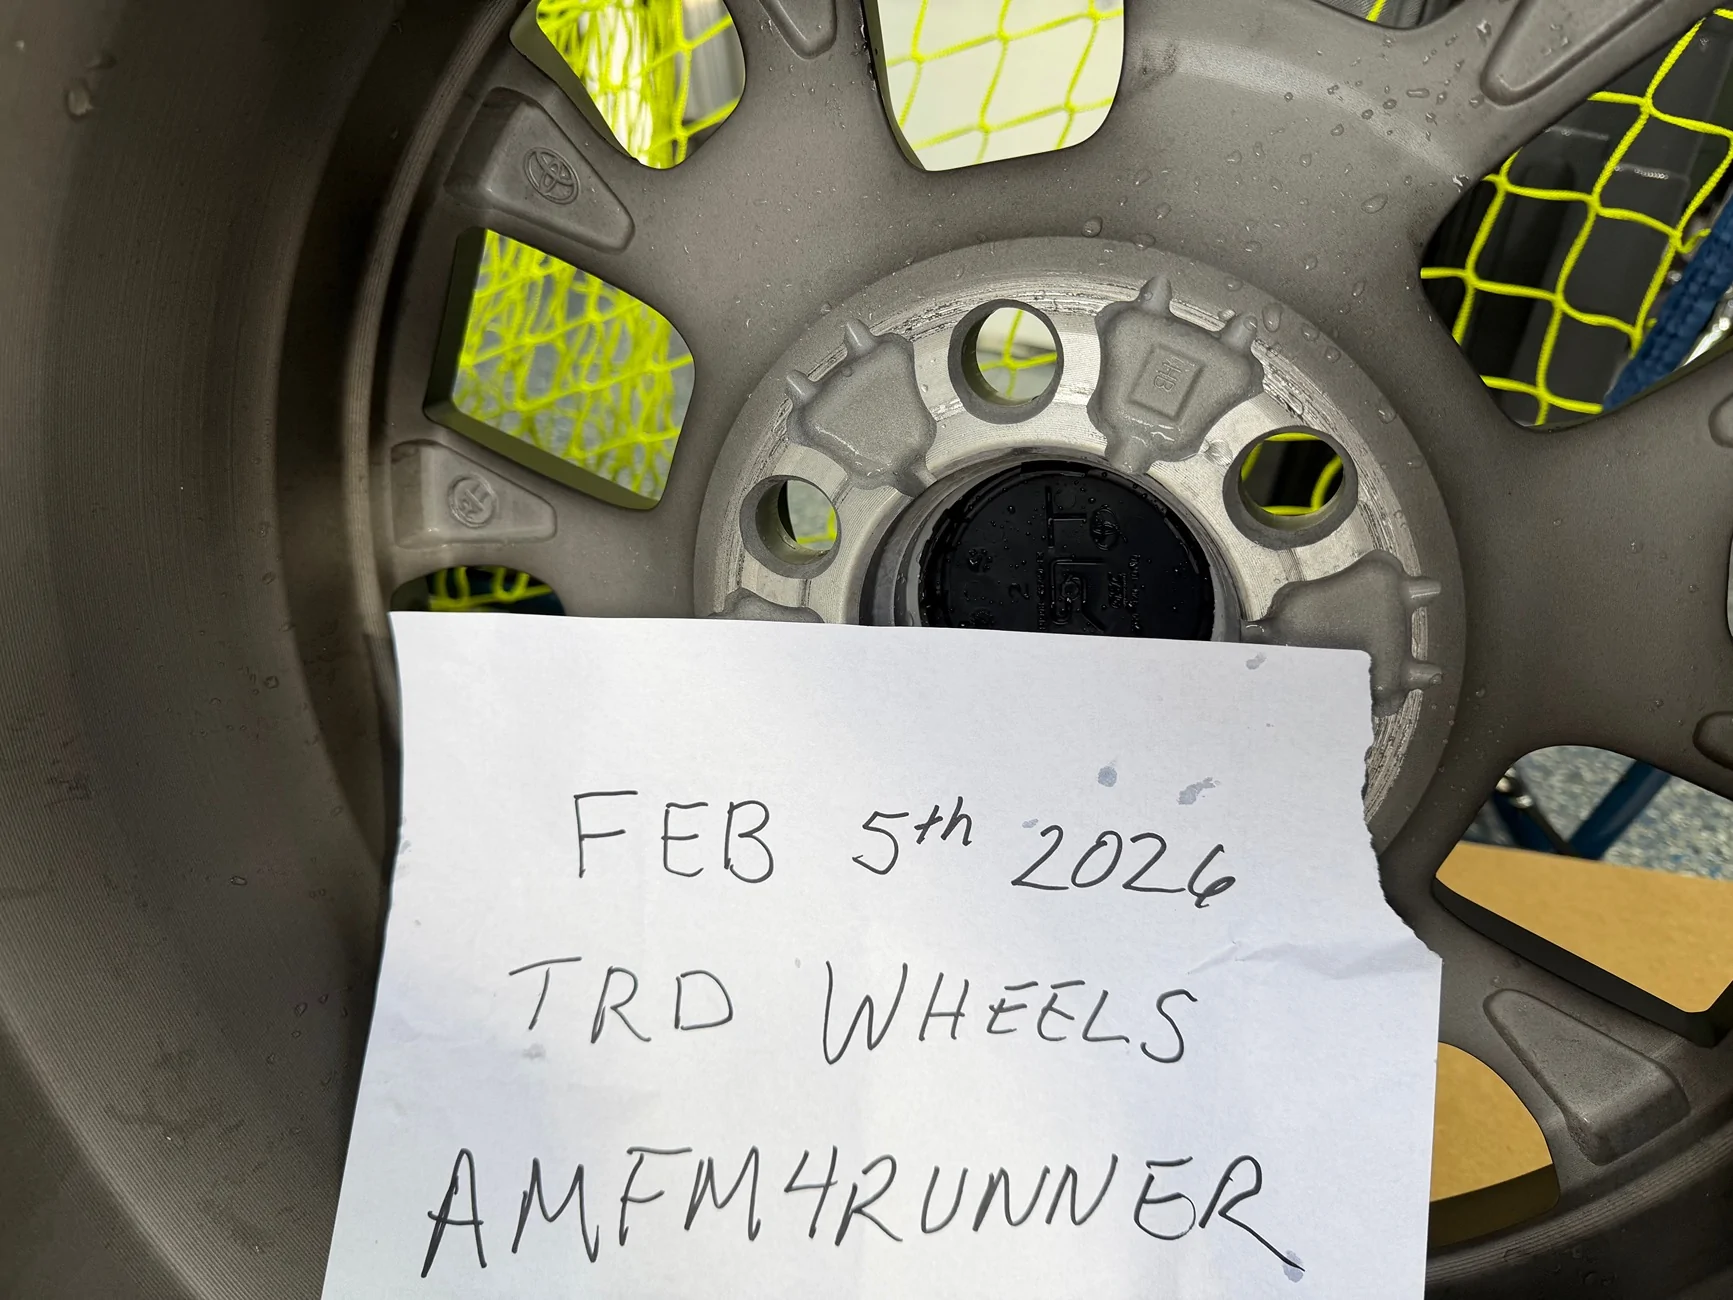 HB
FEB 5th 2026
TRD WHEELS
AMFM4RUNNER